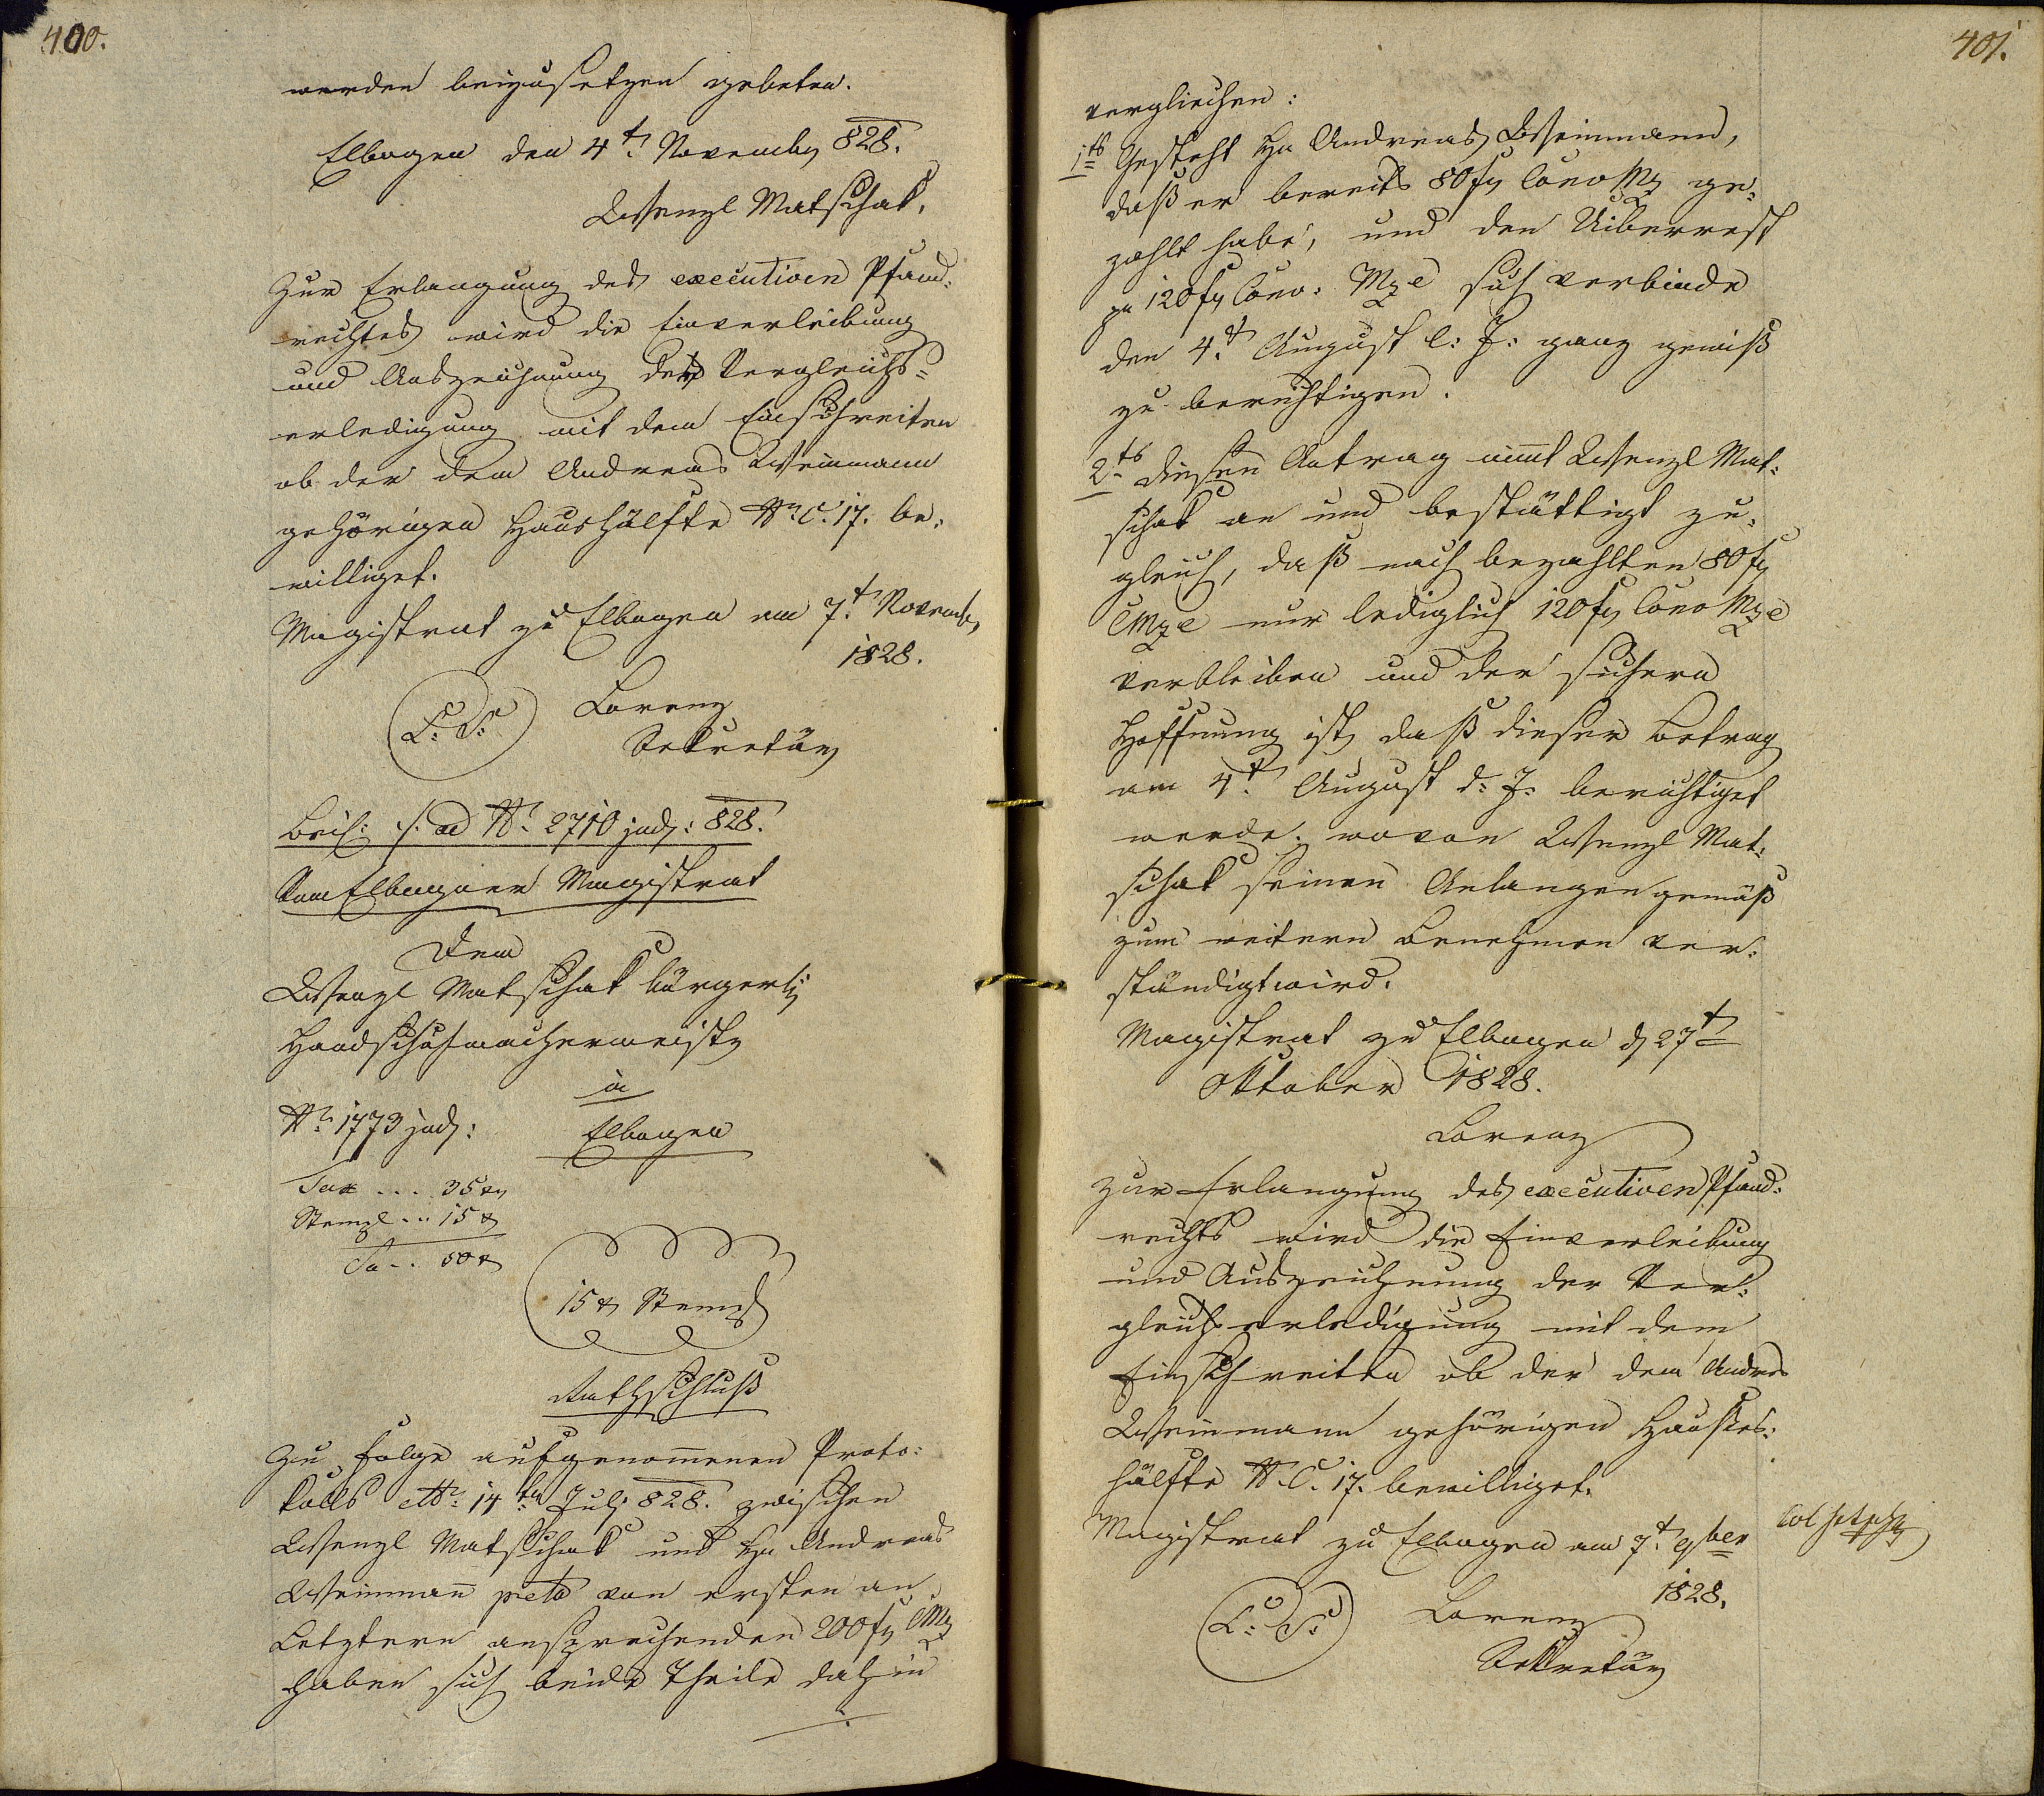 400.
werden beizusetzen gebeten.
Elbogen den 4t. Novemb 828.
Wenzl Matschak.
Zur Erlangung des executiven Pfand-
rechtes wird die Einverleibung
und Auszeichnung der Vergleichs=
erledigung mit dem Einschreiten
ob der dem Andreas Weinmann
gehörigen Haushälfte N. C. 17. be-
williget.
Magistrat zu Elbogen am 7t. Novemb
1828.
L: S: Lorenz
Sekretär
Beil: /. ad N. 2710 jud: 828.
Vom Elbogner Magistrat
Dem
Wenzl Matschak bürgerl
Handschuhmachermeister
in
N. 1773 jud: Elbogen
Tax ... 35 x
Stempl .. 15 x
Sa .. 50 x
15 x Stempl
Rathschluß
Zu Folge aufgenommenen Proto-
kolls 14ten Juli 828. zwischen
Wenzl Matschak und H Andreas
Weinmann pcto von ersten an
Letztern ansprechenden 200 f CMz
haben sich beide Theile dahin
401.
verglichen:
1ts Gesteht H Andreas Weinmann,
daß er bereits 80 f Conv Mz ge-
zahlt habe, und den Uiberrest
pr 120 f Conv: Mze sich verbinde
den 4t. August l: J: ganz gewiß
zu berichtigen.
2ts diesen Antrag nimt Wenzl Mat-
schak an und bestättigt zu-
gleich, daß nach bezahlten 80 f
CMze nur lediglich 120 f Conv Mze
verbleiben und der sichern
Hoffnung ist, daß dieser Betrag
am 4t. August d: J: berichtiget
werde. wovon Wenzl Mat-
schak seinen Anlangen gemäß
zum weitern Benehmen ver-
ständigt wird.
Magistrat zu Elbogen d 27t
Oktober 1828.
Lorenz
Zur Erlangung des executiven Pfand-
rechts wird die Einverleibung
und Auszeichnung der Ver-
gleichserledigung mit dem
Einschreiten ob der dem Andreas
Weinmann gehörigen Hauses-
hälfte N. C. 17. bewilliget.
Magistrat zu Elbogen am 7t. 9ber
1828.
L: S: Lorenz
Sekretär